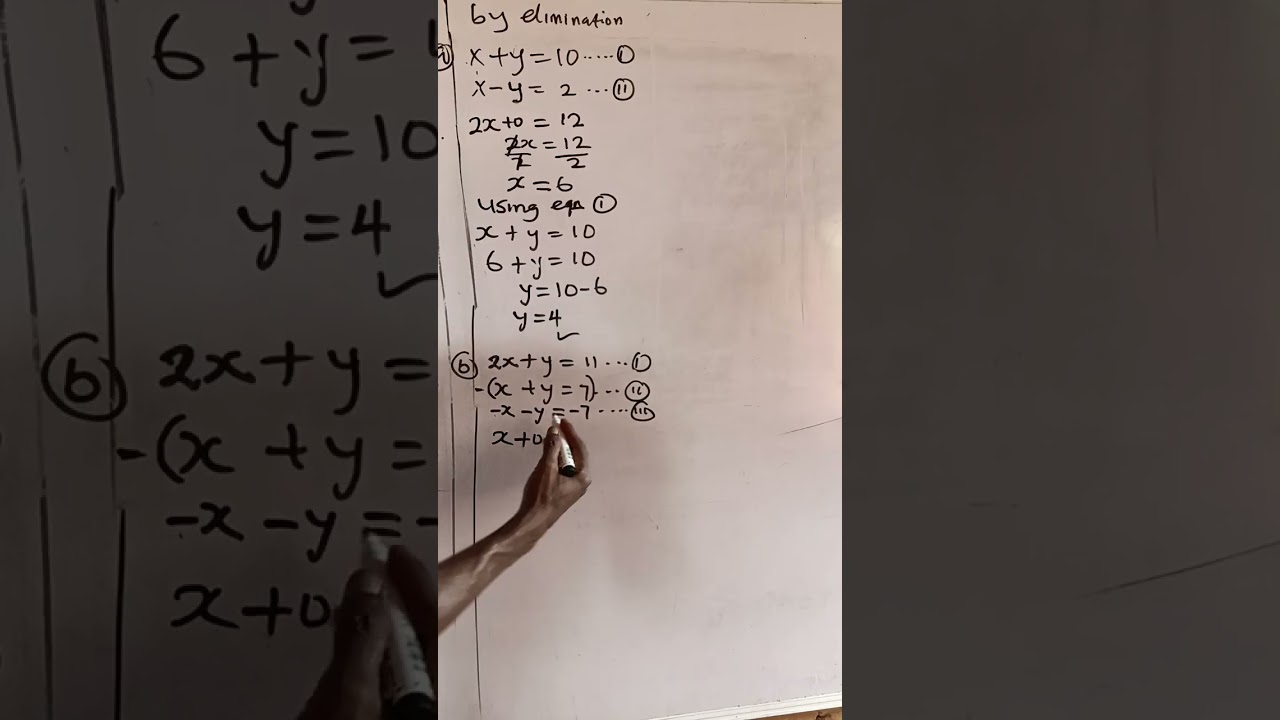 by elimination
a x+y=10.....①
x-y= 2 ...⑪
2x+0 = 12
2x/2 = 12/2
x=6
using eqn ①
x + y = 10
6 + y = 10
y=10-6
y=4
ⓑ 2x+y = 11 ... ①
-(x +y=7)... ⑪
-x-y=-7 .... ⑪⑪
x+0